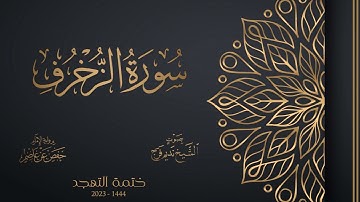 سُورَةُ الزُّخْرُفِ
بصوت
الشيخ نديم فرج
برواية الإمام
حفص عن عاصم
ختمة التهجد
2023 - 1444